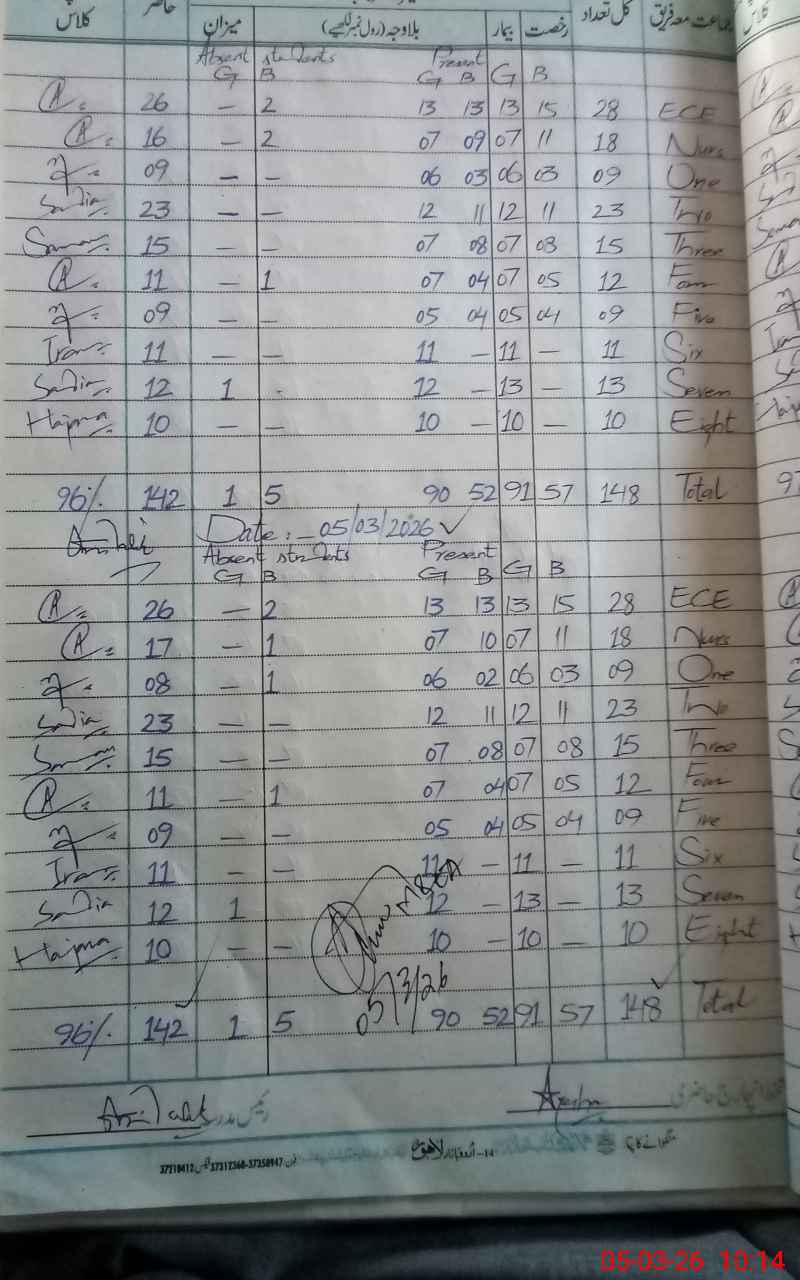 کلاس حاضر میزان بلاوجہ (رول نمبر لکھیے) بیمار رخصت کل تعداد جماعت معہ فریق
Absent students Present
G B G B G B
26 — 2 13 13 13 15 28 ECE
16 — 2 07 09 07 11 18 Nurs
09 — — 06 03 06 03 09 One
Sadia 23 — — 12 11 12 11 23 Two
15 — — 07 08 07 08 15 Three
11 — 1 07 04 07 05 12 Four
09 — — 05 04 05 04 09 Five
11 — — 11 — 11 — 11 Six
Sadia 12 1 - 12 — 13 — 13 Seven
10 — — 10 — 10 — 10 Eight
96% 142 1 5 90 52 91 57 148 Total
Date:- 05/03/2026 ✓
Absent students Present
G B G B G B
26 — 2 13 13 13 15 28 ECE
17 — 1 07 10 07 11 18 Nurs
08 — 1 06 02 06 03 09 One
Sadia 23 — — 12 11 12 11 23 Two
15 — — 07 08 07 08 15 Three
11 — 1 07 04 07 05 12 Four
09 — — 05 04 05 04 09 Five
11 — — 11 — 11 — 11 Six
Sadia 12 1 12 — 13 — 13 Seven
10 — — 10 — 10 — 10 Eight
05/3/26
96% 142 1 5 90 52 91 57 148 Total
رئیس مدرسہ
لاہور
37310412 37312368-37358947
05-03-26 10:14